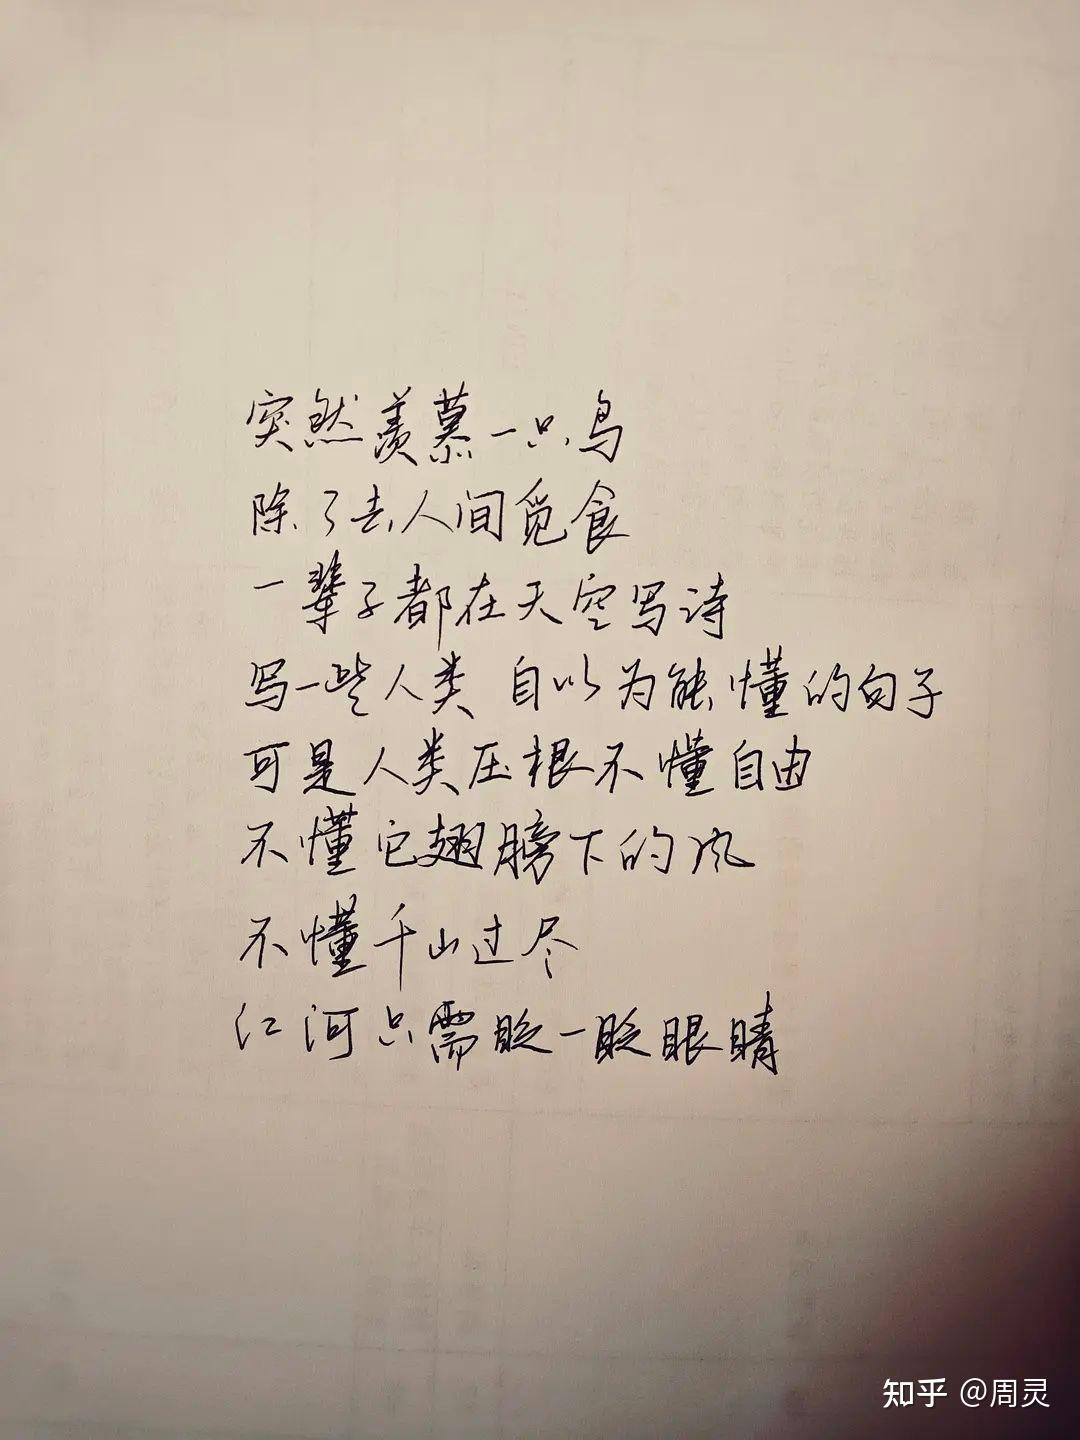 突然羡慕一只鸟
除了去人间觅食
一辈子都在天空写诗
写一些人类自以为能懂的句子
可是人类压根不懂自由
不懂它翅膀下的风
不懂千山过尽
江河只需眨一眨眼睛
知乎 @周灵